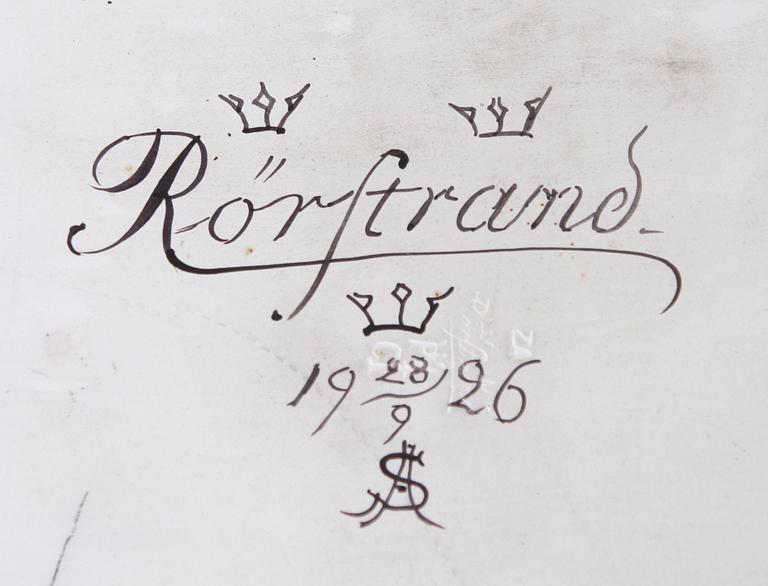 Rörstrand.
19 28/9 26
AS